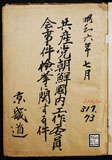 昭和六年七月
共産党朝鮮国内工作委員
会事件検挙ニ関スル件
京畿道
317.
13